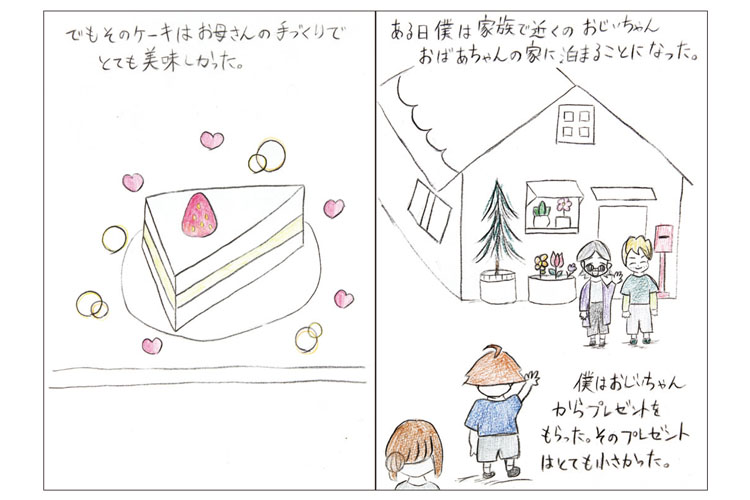 でもそのケーキはお母さんの手づくりで
とても美味しかった。
ある日僕は家族で近くのおじいちゃん
おばあちゃんの家に泊まることになった。
僕はおじいちゃん
からプレゼントを
もらった。そのプレゼント
はとても小さかった。